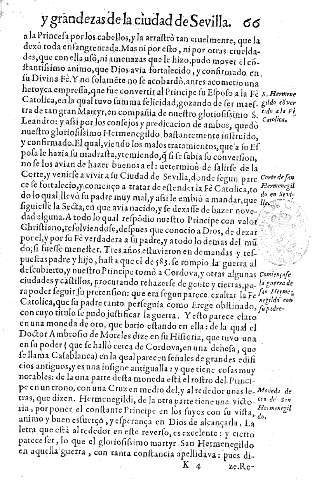 y grandezas de la ciudad de Sevilla. 66
a la Princesa por los cabellos, y la arrastrò tan cruelmente, que la
dexò toda ensangrentada. Mas ni por esso, ni por otras crueldades,
que con ella usò, ni amenazas que le hizo, pudo mover el cõ-
stantissimo animo, que Dios avia fortalecido, y confirmado en
su Divina Fè. Y no solamẽte no se acobardò, antes acometio una
heroyca empresa, que fue convertir al Principe su Esposo a la Fè
Catolica, en la qual tuvo summa felicidad, gozando de ser maes-
tra de tan gran Martyr, en compañia de nuestro gloriosissimo S.
Leandro: y assi por los consejos y predicacion de ambos, quedò
nuestro gloriosissimo Hermenegildo bastantemente instruido,
y confirmado. El qual, viendo los malos tratamientos, que a su Es-
posa le hazia su madrastra, y temiendo, q̃ si se sabia su conversion,
no se los avian de hazer buenos a el: determinò de salirse de la
Corte, y venirse a vivir a su Ciudad de Sevilla, donde segun pare
ce se fortalecio, y començo a tratar de estender la Fè Catolica, to
do lo qual llevò su padre muy mal, y assi le embiò a mandar, que
siguiesse la Secta, en que avia nacido, y se dexasse de hazer nove-
dad alguna. A todo lo qual respõdio nuestro Principe con valor
Christiano, resolviendose, despues que conocio a Dios, de dexar
por el, y por su Fè verdadera a su padre, y a todo lo demas del mũ
do, si fuesse menester. Tres años estuvieron en demandas y res-
puestas padre y hijo, hasta que el de 583. se rompio la guerra al
descubierto, y nuestro Principe tomò a Cordova, y otras algunas
ciudades y castillos, procurando rehazerse de gente y tierras, pa-
ra poder seguir su pretension: que era segun parece exaltar la Fè
Catolica, que su padre tanto perseguia como Erege obstinado,
con cuyo titulo se pudo justificar la guerra. Y esto parece claro
en una moneda de oro, que batio estando en ella: de la qual el
Doctor Ambrosio de Morales dize en su Historia, que tuvo una
en su poder (que se hallò cerca de Cordova, en una dehesa, que
se llama Casablanca) en la qual parecen señales de grandes edifi
cios antiguos, y es una insigne antigualla: y que tiene cosas muy
notables: de la una parte desta moneda està el rostro del Princi-
pe en un trono, con una Cruz en medio del, y al rededor unas le-
tras, que dizen. Hermenegildi, de la otra parte tiene una victo
ria, por poner el constante Principe en los suyos con su vista
animo y buen esfuerço, y esperança en Dios de alcançarla. La
letra que està al rededor en este reverso, es excelente: y cierto
parece ser, lo que el gloriosissimo martyr San Hermenegildo
en aquella guerra, con tanta constancia apellidava: pues di-
K 4 ze. Re-
S. Hermene
gildo cõver
tido a la Fè
Catolica.
Corte de san
Hermenegil
do en Sevi-
lla.
Comiençase
la guerra de
san Herme-
negildo con
su padre.
Moneda de
oro de san
Hermenegil
do.